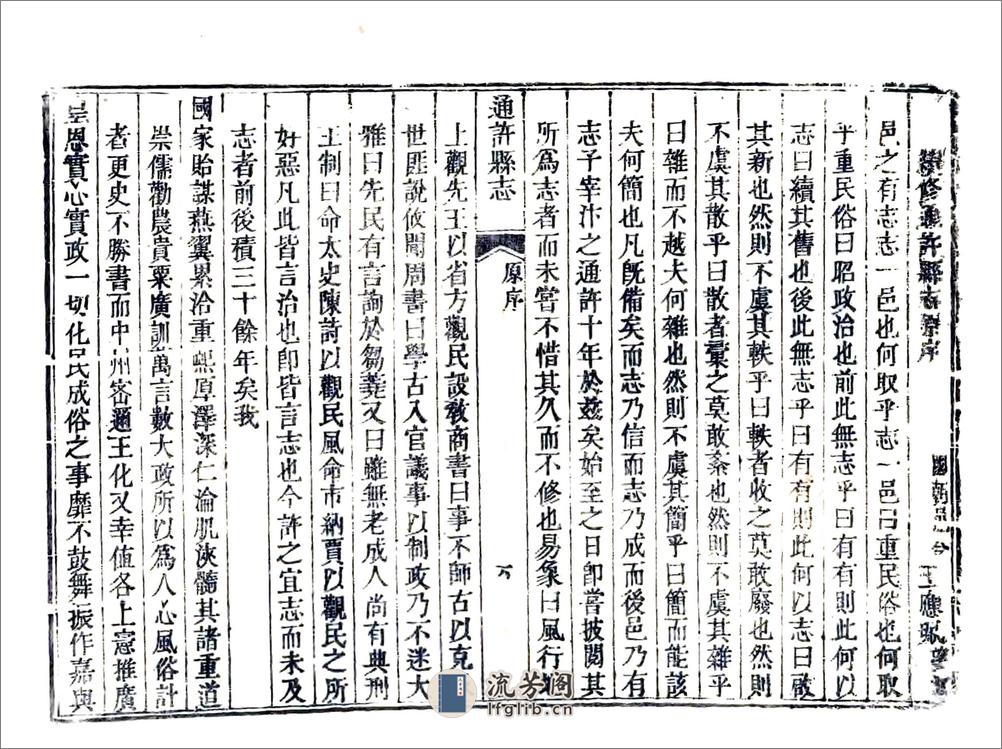 續修通許縣志原序
國朝邑令 王應珮
邑之有志志一邑也何取乎志一邑曰重民俗也何取
乎重民俗曰昭政治也前此無志乎曰有有則此何以
志曰續其舊也後此無志乎曰有有則此何以志曰啟
其新也然則不虞其軼乎曰軼者收之莫敢廢也然則
不虞其散乎曰散者彚之莫敢紊也然則不虞其雜乎
曰雜而不越夫何雜也然則不虞其簡乎曰簡而能該
夫何簡也凡旣備矣而志乃信而志乃成而後邑乃有
志予宰汴之通許十年於茲矣始至之日卽嘗披閱其
所爲志者而未嘗不惜其久而不修也易象曰風行地
通許縣志 原序 六
上觀先王以省方觀民設敎商書曰事不師古以克永
世匪說攸聞周書曰學古入官議事以制政乃不迷大
雅曰先民有言詢於芻蕘又曰雖無老成人尚有典刑
王制曰命太史陳詩以觀民風命市納賈以觀民之所
好惡凡此皆言治也卽皆言志也今許之宜志而未及
志者前後積三十餘年矣我
國家貽謀燕翼累洽重熈厚澤深仁淪肌浹髓其諸重道
崇儒勸農貴粟廣訓萬言數大政所以爲人心風俗計
者更史不勝書而中州密邇王化又幸值各上憲推廣
皇恩實心實政一切化民成俗之事靡不鼓舞振作嘉與
流芳阁
lfglib.cn